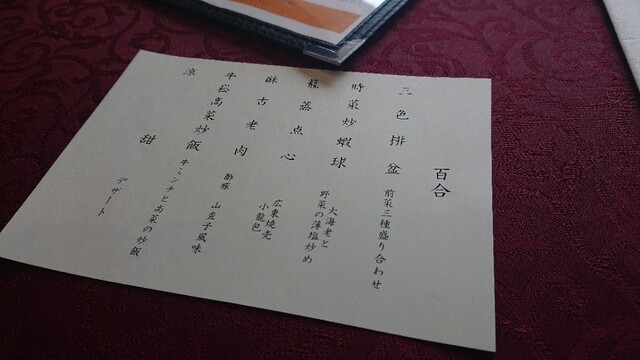 百合
三色排盆 前菜三種盛り合わせ
時菜炒蝦球 大海老と
野菜の薄塩炒め
籠蒸点心 広東焼売
小龍包
酥古老肉 酢豚 山査子風味
牛松高菜炒飯 牛ミンチと高菜の炒飯
凉 甜 デザート